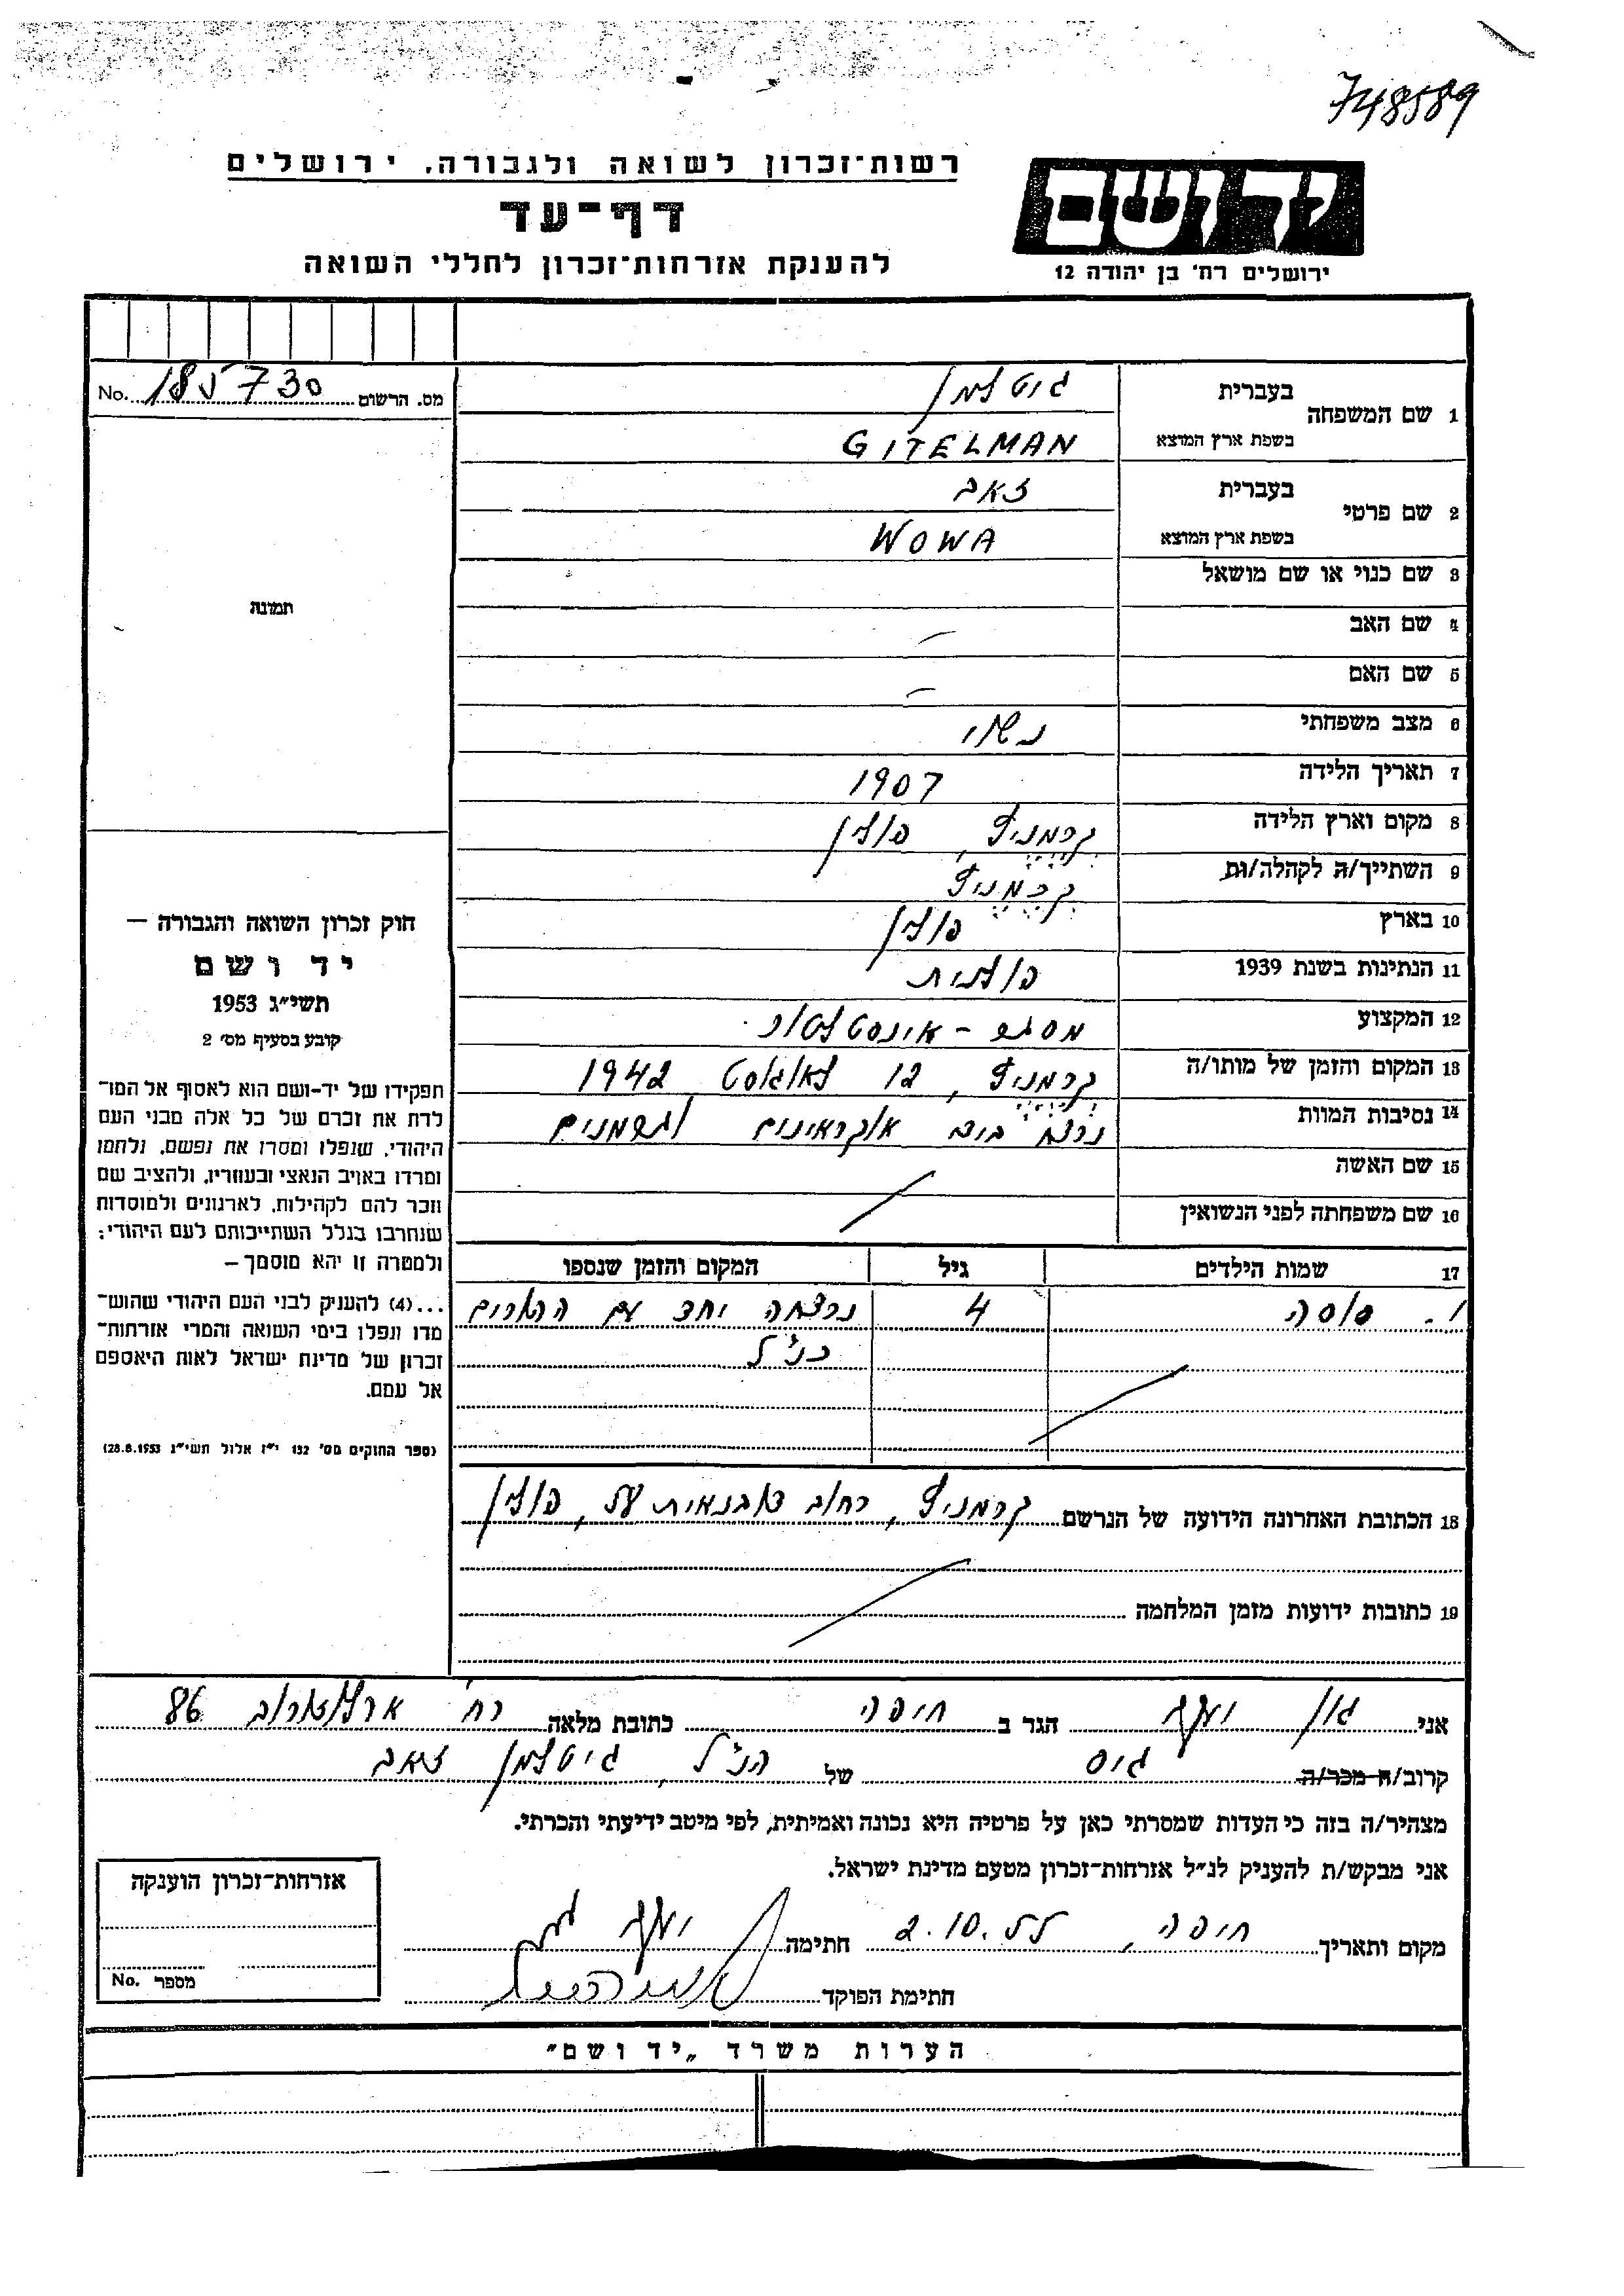 748589
יד ושם
ירושלים רח' בן יהודה 12
רשות־זכרון לשואה ולגבורה, ירושלים
דף־עד
להענקת אזרחות־זכרון לחללי השואה
No. 185730 מס. הרשום
1 שם המשפחה בעברית גיטלמן
בשפת ארץ המוצא GITELMAN
2 שם פרטי בעברית זאב
בשפת ארץ המוצא WOWA
3 שם כנוי או שם מושאל
4 שם האב —
5 שם האם —
6 מצב משפחתי נשוי
7 תאריך הלידה 1907
8 מקום וארץ הלידה קרמניץ, פולין
9 השתייך/ה לקהלה/ות קרמניץ
10 בארץ פולין
11 הנתינות בשנת 1939 פולנית
12 המקצוע מסגר - אינסטלטור
13 המקום והזמן של מותו/ה קרמניץ, 12 לאוגוסט 1942
14 נסיבות המוות נרצח בידי אוקראינים וגרמנים
15 שם האשה
16 שם משפחתה לפני הנשואין
17 שמות הילדים גיל המקום והזמן שנספו
1. סוסה 4 נרצחה יחד עם ההורים
כנ"ל
18 הכתובת האחרונה הידועה של הנרשם קרמניץ, רחוב, פולין
19 כתובות ידועות מזמן המלחמה
תמונה
חוק זכרון השואה והגבורה —
יד ושם
תשי״ג 1953
קובע בסעיף מס' 2
תפקידו של יד־ושם הוא לאסוף אל המו־
לדת את זכרם של כל אלה מבני העם
היהודי, שנפלו ומסרו את נפשם, נלחמו
ומרדו באויב הנאצי ובעוזריו, ולהציב שם
וזכר להם לקהילות, לארגונים ולמוסדות
שנחרבו בגלל השתייכותם לעם היהודי;
ולמטרה זו יהא מוסמך —
...(4) להענקיק לבני העם היהודי שהוש־
מדו ונפלו בימי השואה והמרי אזרחות־
זכרון של מדינת ישראל לאות היאספם
אל עמם.
(ספר החוקים מס' 132 י״ז אלול תשי״ג 28.8.1953)
אני הגר ב חיפה כתובת מלאה רח' ארלוזורוב 86
קרוב/ה מכר/ה גיס של הנ"ל, גיטלמן זאב
מצהיר/ה בזה כי העדות שמסרתי כאן על פרטיה היא נכונה ואמיתית, לפי מיטב ידיעתי והכרתי.
אני מבקש/ת להעניק לנ״ל אזרחות־זכרון מטעם מדינת ישראל.
מקום ותאריך חיפה, 2.10.55 חתימה
חתימת הפוקד
אזרחות־זכרון הוענקה
מספר No.
הערות משרד „יד ושם״